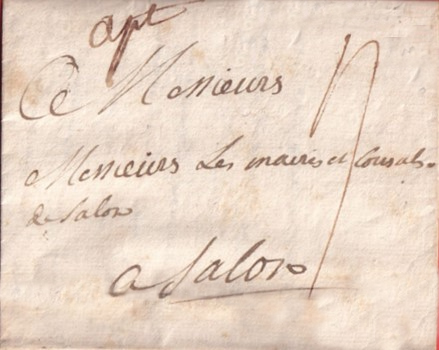 apt
A Messieurs
Messieurs Les maires et Consuls
de Salon
a Salon